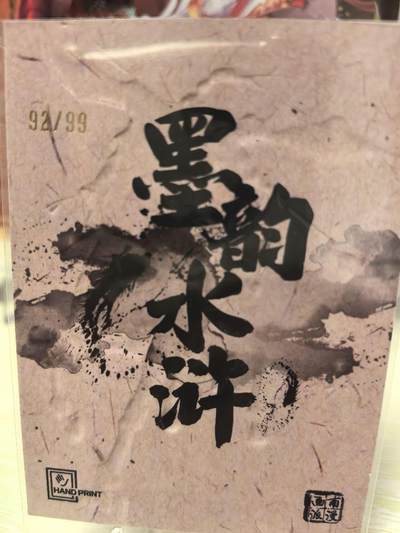 92/99
墨韵
水浒
HAND PRINT
南漫
画派